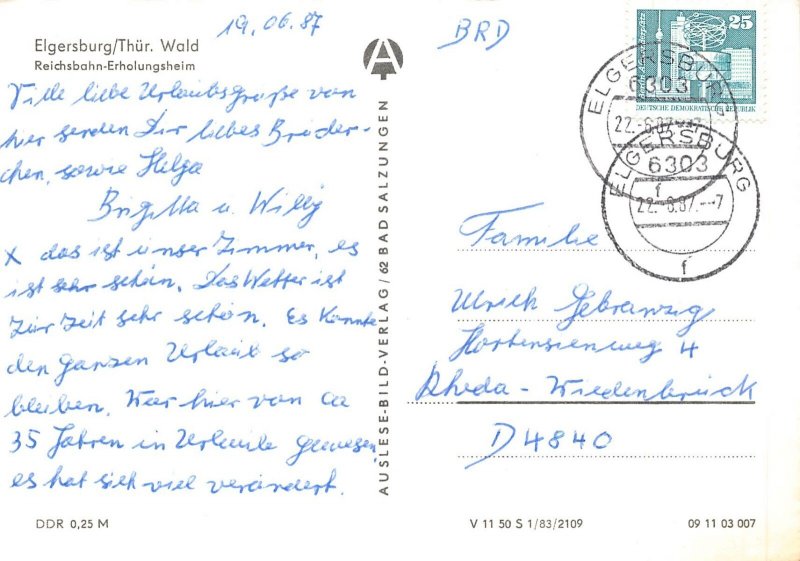 19.06.87
Elgersburg/Thür. Wald
Reichsbahn-Erholungsheim
Viele liebe Urlaubsgrüße von
hier senden Dir liebes Brüder-
chen, sowie Helga
Brigitta u. Willy
x das ist unser Zimmer, es
ist sehr schön. Das Wetter ist
zur Zeit sehr schön. Es könnte
den ganzen Urlaub so
bleiben. War hier von ca
35 Jahren in Urlaub gewesen,
es hat sich viel verändert.
DDR 0,25 M
AUSLESE-BILD-VERLAG / 62 BAD SALZUNGEN
BRD
25
DEUTSCHE DEMOKRATISCHE REPUBLIK
ELGERSBURG
6303
22.-6.87.--7
f
ELGERSBURG
6303
22.-6.87.--7
f
Familie
Ulrich
Hortensienweg 4
Rheda-Wiedenbrück
D4840
V 11 50 S 1/83/2109
09 11 03 007